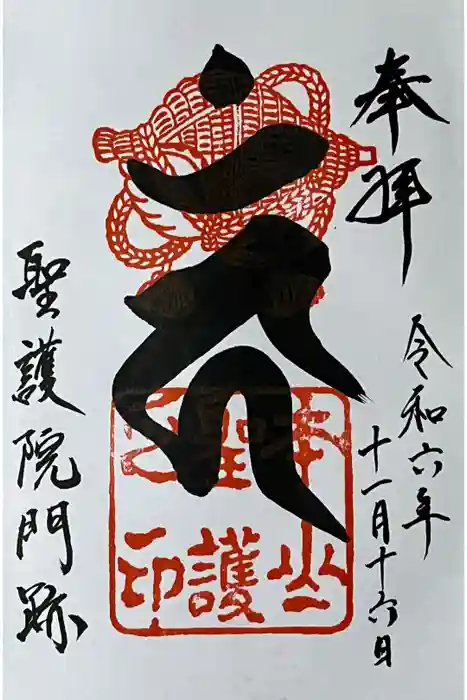 奉拝
令和六年
十一月十六日
本山
聖護
之印
聖護院門跡